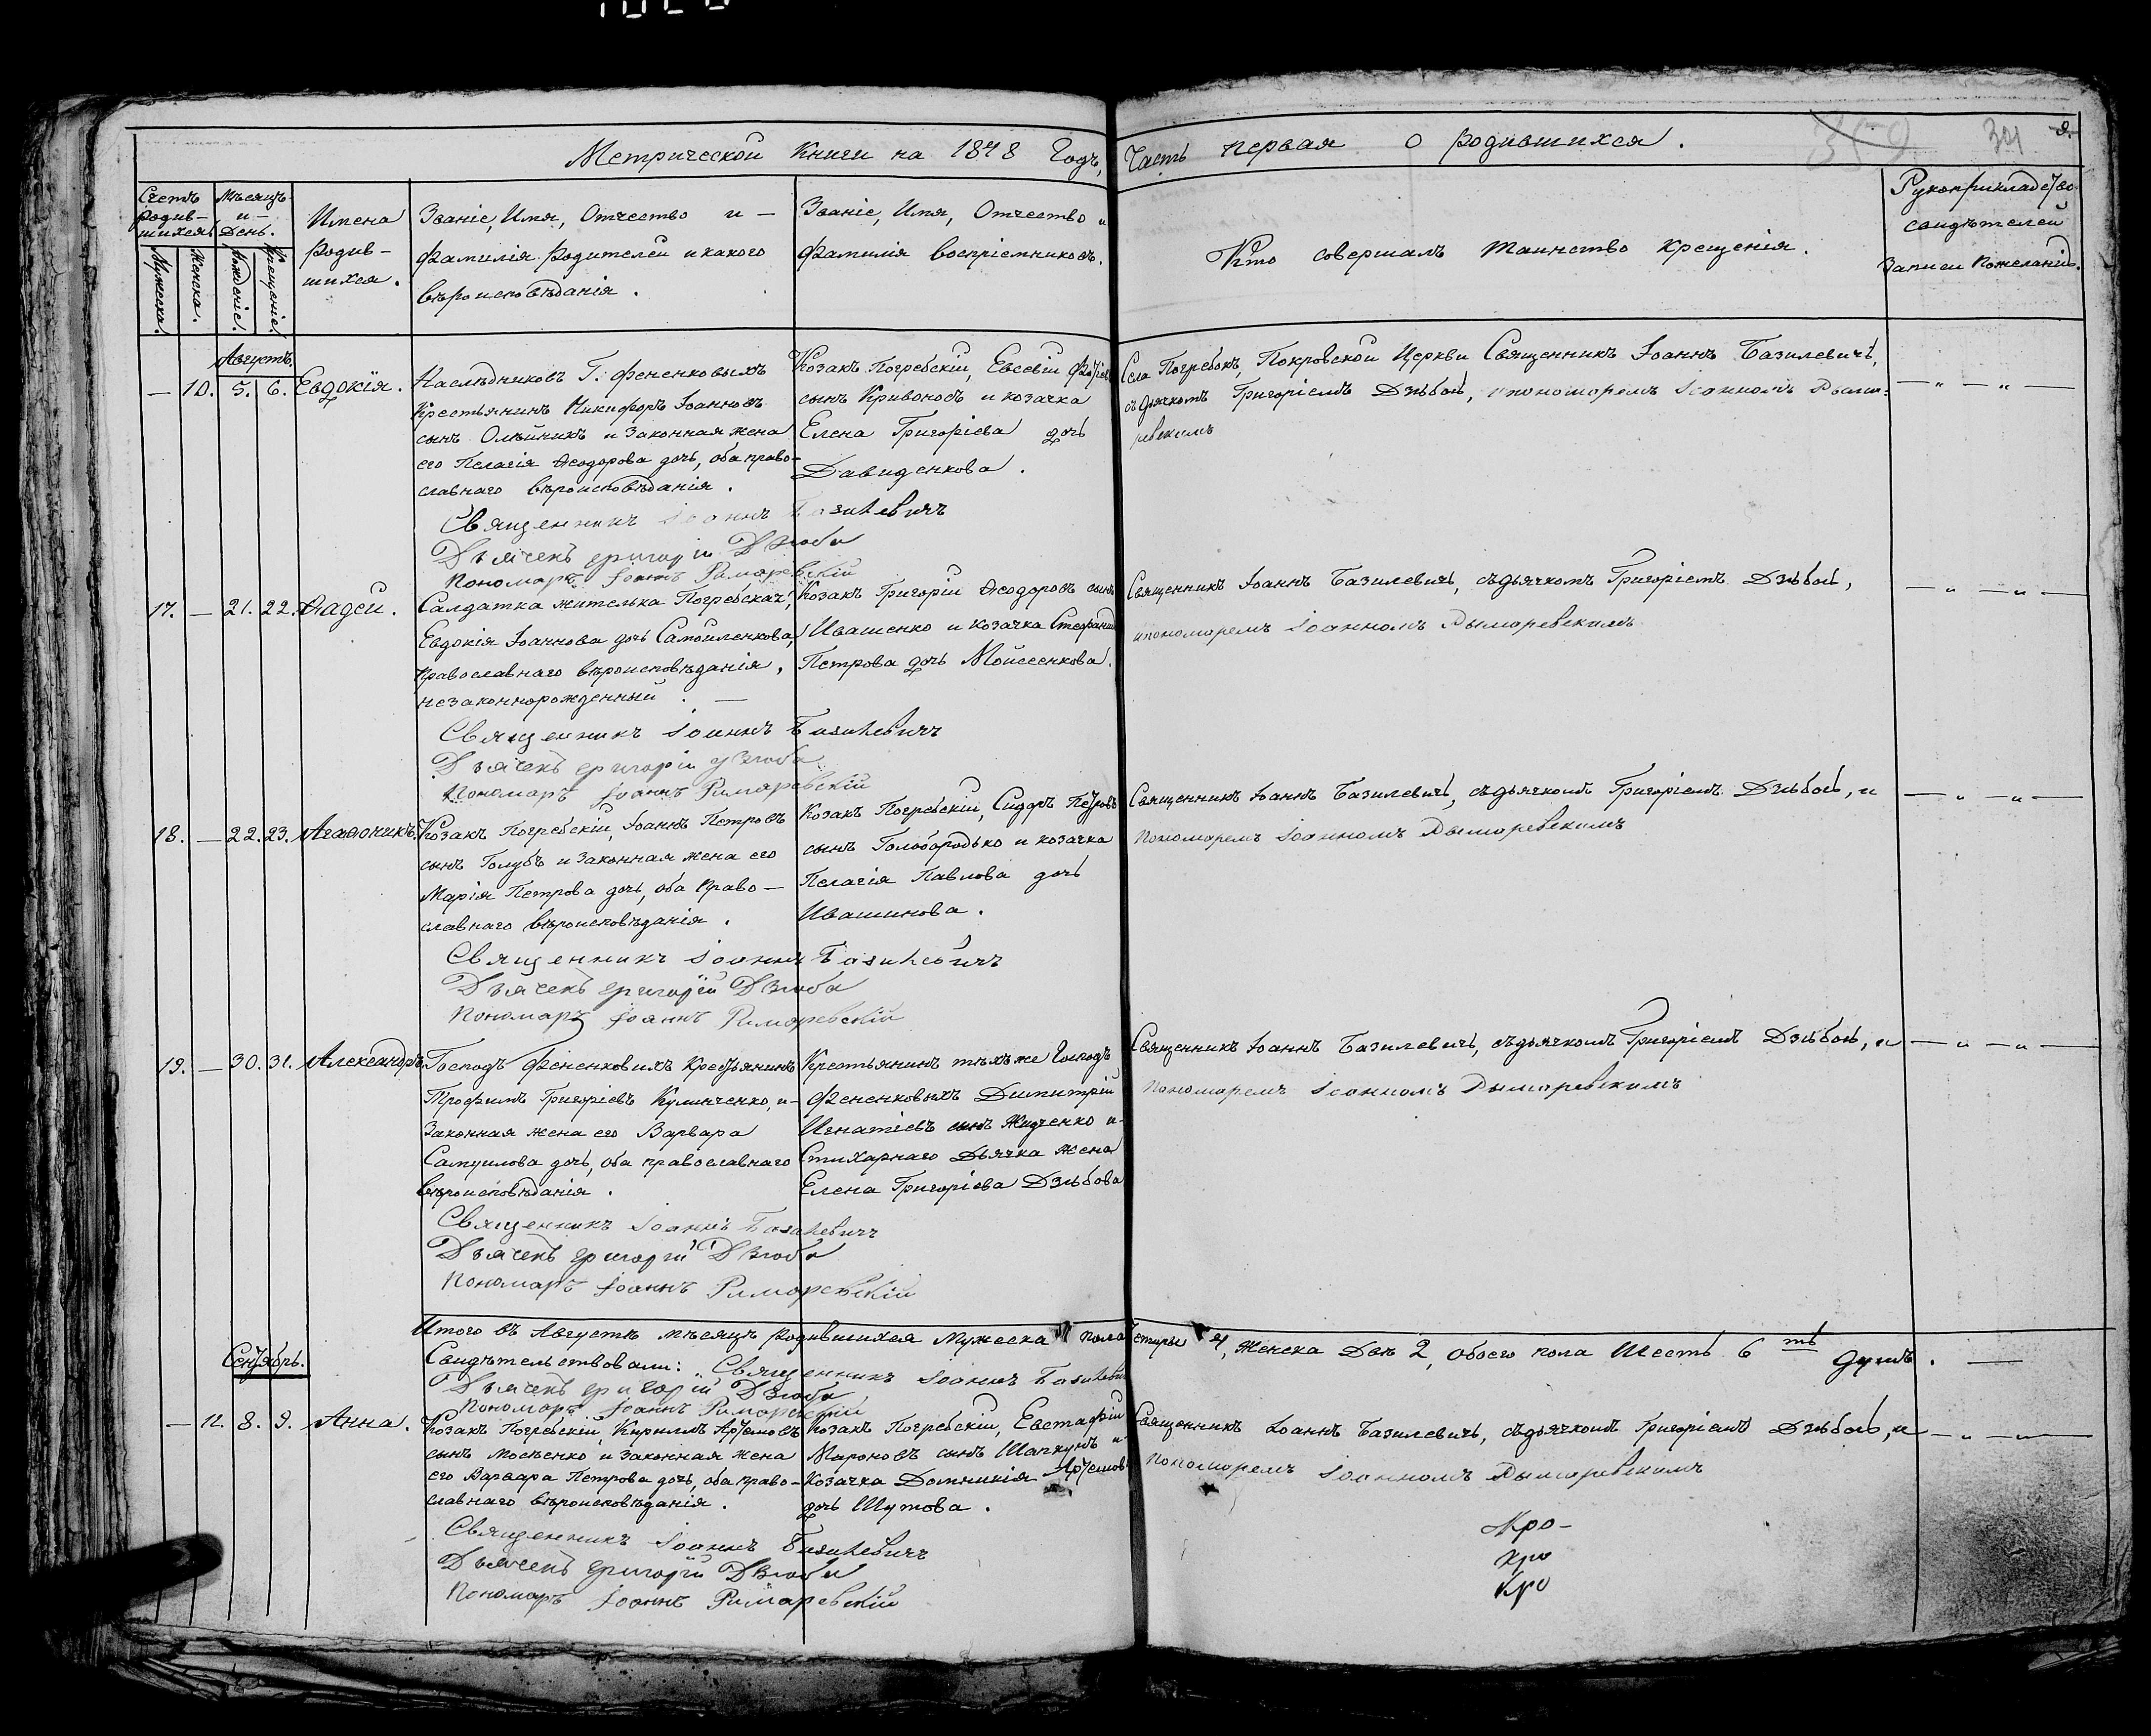 Метрической Книги на 1848 Годъ, Часть первая о родившихся.
Счетъ родив-шихся.
Мужеска.
Женска.
Мѣсяцъ и День.
Рожденіе.
Крещеніе.
Имена
родив-
шихся.
Званіе, Имя, Отчество и
фамилія родителей и какого
вѣроисповѣданія.
Званіе, Имя, Отчество и
фамилія воспріемниковъ.
Кто совершалъ таинство крещенія.
Рукоприкладство
свидѣтелей
записи по желанію.
Августъ.
— 10. 5. 6. Евдокія.
Наслѣдниковъ Г. Фененковыхъ
Крестьянинъ Никифоръ Іоанновъ
сынъ Олѣйникъ и законная жена
его Пелагія Ѳеодорова дочь, оба право-
славнаго вѣроисповѣданія.
Козакъ Погребскій, Евсевій
сынъ Кривоносъ и козачка
Елена Григоріева дочь
Давиденкова.
Села Погребокъ, Покровской Церкви Священникъ Іоаннъ Базилевичъ,
съ дьячкомъ Григоріемъ Дзюбою, и пономаремъ Іоанномъ Рыма-
ревскимъ
Священникъ Іоаннъ Базилевичъ
Дьячекъ Григорій Дзюба
Пономаръ Іоаннъ Римаревскій
17. — 21. 22. Ѳадей.
Салдатка жителька Погребская,
Евдокія Іоаннова дочь Самойленкова,
православнаго вѣроисповѣданія,
незаконнорожденный. —
Козакъ Григорій Ѳеодоровъ сынъ
Ивашенко и козачка Стефанида
Петрова дочь Мойсеенкова.
Священникъ Іоаннъ Базилевичъ, съ дьячкомъ Григоріемъ Дзюбою,
и пономаремъ Іоанномъ Рымаревскимъ
Священникъ Іоаннъ Базилевичъ
Дьячекъ Григорій Дзюба
Пономаръ Іоаннъ Римаревскій
18. — 22. 23. Агаѳоникъ.
Козакъ Погребскій, Іоаннъ Петровъ
сынъ Голубъ и законная жена его
Марія Петрова дочь, оба право-
славнаго вѣроисповѣданія.
Козакъ Погребскій, Сидоръ Петровъ
сынъ Голобородько и козачка
Пелагія Павлова дочь
Ивашинова.
Священникъ Іоаннъ Базилевичъ, съ дьячкомъ Григоріемъ Дзюбою, и
пономаремъ Іоанномъ Рымаревскимъ
Священникъ Іоаннъ Базилевичъ
Дьячекъ Григорій Дзюба
Пономаръ Іоаннъ Римаревскій
19. — 30. 31. Александръ.
Господъ Фененковыхъ Крестьянинъ
Трофимъ Григоріевъ Кулинченко, и
законная жена его Варвара
Самуилова дочь, оба православнаго
вѣроисповѣданія.
Крестьянинъ тѣхъ же Господъ
Фененковыхъ Димитрій
Игнатіевъ сынъ Жидченко и
Стихарнаго Дьячка жена
Елена Григоріева Дзюбова
Священникъ Іоаннъ Базилевичъ, съ дьячкомъ Григоріемъ Дзюбою, и
пономаремъ Іоанномъ Рымаревскимъ
Священникъ Іоаннъ Базилевичъ
Дьячекъ Григорій Дзюба
Пономаръ Іоаннъ Римаревскій
Итого въ Августѣ мѣсяцѣ родившихся Мужеска пола четыри 4, Женска Двѣ 2, Обоего пола Шесть 6 ть душъ. —
Свидѣтельствовали: Священникъ Іоаннъ Базилевичъ
Дьячекъ Григорій Дзюба
Пономаръ Іоаннъ Римаревскій
Сентябрь.
— 11. 8. 9. Анна.
Козакъ Погребскій, Кириллъ Артемовъ
сынъ Мосѣенко и законная жена
его Варвара Петрова дочь, оба право-
славнаго вѣроисповѣданія.
Козакъ Погребскій, Евстафій
Мироновъ сынъ и
Козачка Домникія Артемова
дочь Шутова.
Священникъ Іоаннъ Базилевичъ, съ дьячкомъ Григоріемъ Дзюбою, и
пономаремъ Іоанномъ Рымаревскимъ
Священникъ Іоаннъ Базилевичъ
Дьячекъ Григорій Дзюба
Пономаръ Іоаннъ Римаревскій